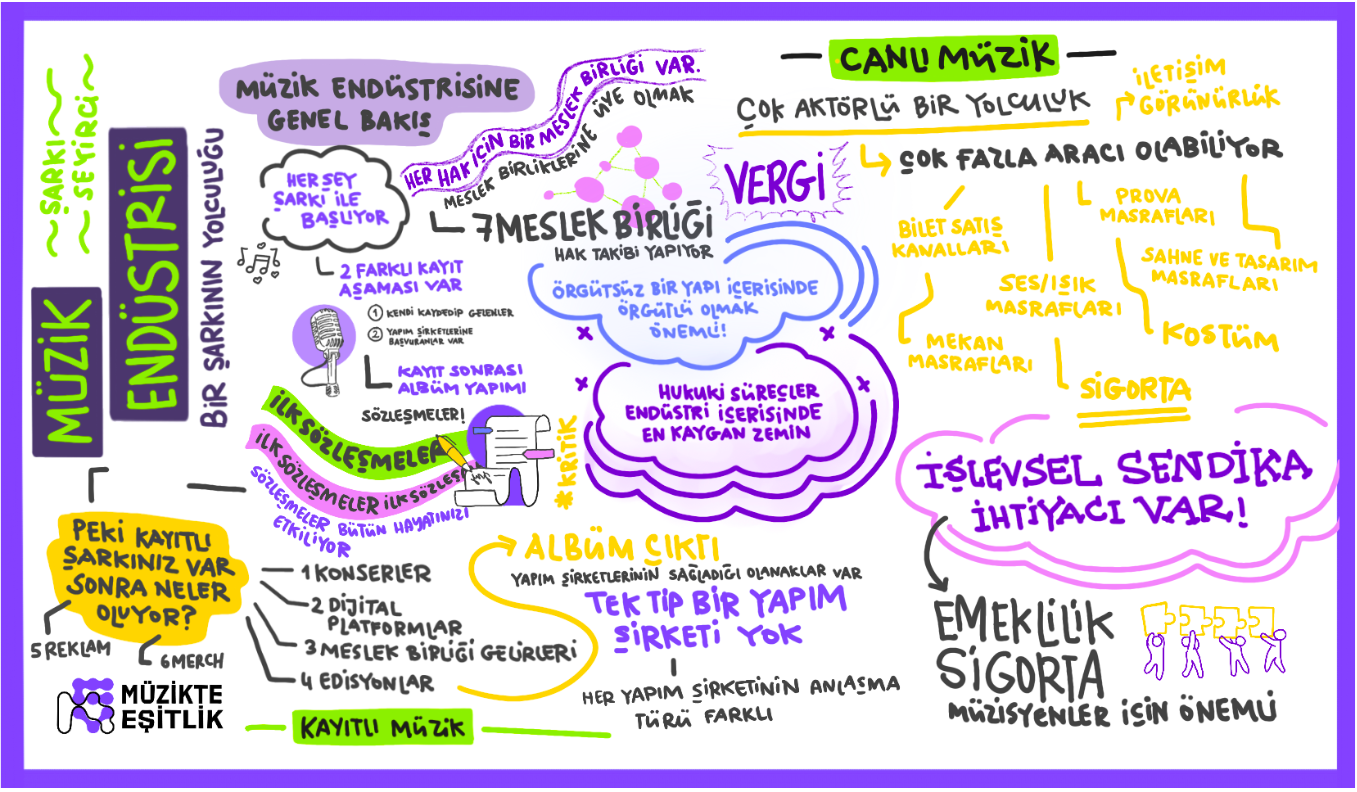 ~ŞARKI~
~SEYİRCİ~
MÜZİK
ENDÜSTRİSİ
BİR ŞARKININ YOLCULUĞU
MÜZİK ENDÜSTRİSİNE
GENEL BAKIŞ
HER ŞEY
ŞARKI İLE
BAŞLIYOR
2 FARKLI KAYIT
AŞAMASI VAR
1 KENDİ KAYDEDİP GELENLER
2 YAPIM ŞİRKETLERİNE
BAŞVURANLAR VAR
KAYIT SONRASI
ALBÜM YAPIMI
SÖZLEŞMELER!
İLK SÖZLEŞMELER
İLK SÖZLEŞMELER İLK SÖZLEŞ
SÖZLEŞMELER BÜTÜN HAYATINIZI
ETKİLİYOR
*KRİTİK
HER HAK İÇİN BİR MESLEK BİRLİĞİ VAR.
MESLEK BİRLİKLERİNE ÜYE OLMAK
7 MESLEK BİRLİĞİ
HAK TAKİBİ YAPIYOR
VERGİ
ÖRGÜTSÜZ BİR YAPI İÇERİSİNDE
ÖRGÜTLÜ OLMAK
ÖNEMLİ!
HUKUKİ SÜREÇLER
ENDÜSTRİ İÇERİSİNDE
EN KAYGAN ZEMİN
PEKİ KAYITLI
ŞARKINIZ VAR
SONRA NELER
OLUYOR?
1 KONSERLER
2 DİJİTAL
PLATFORMLAR
3 MESLEK BİRLİĞİ GELİRLERİ
4 EDİSYONLAR
5 REKLAM
6 MERCH
MÜZİKTE
EŞİTLİK
KAYITLI MÜZİK
ALBÜM ÇIKTI
YAPIM ŞİRKETLERİNİN SAĞLADIĞI OLANAKLAR VAR
TEK TİP BİR YAPIM
ŞİRKETİ YOK
HER YAPIM ŞİRKETİNİN ANLAŞMA
TÜRÜ FARKLI
CANLI MÜZİK
ÇOK AKTÖRLÜ BİR YOLCULUK
İLETİŞİM
GÖRÜNÜRLÜK
ÇOK FAZLA ARACI OLABİLİYOR
BİLET SATIŞ
KANALLARI
MEKAN
MASRAFLARI
SES/IŞIK
MASRAFLARI
SİGORTA
PROVA
MASRAFLARI
KOSTÜM
SAHNE VE TASARIM
MASRAFLARI
İŞLEVSEL SENDİKA
İHTİYACI VAR!
EMEKLİLİK
SİGORTA
MÜZİSYENLER İÇİN ÖNEMLİ